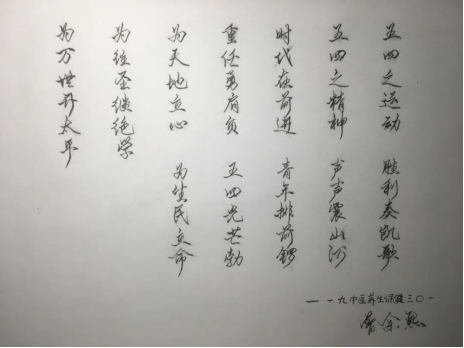 五四之运动 胜利奏凯歌
五四之精神 声声震山河
时代在前进 青年排前
重任勇肩负 五四光芒勃
为天地立心 为生民立命
为往圣继绝学
为万世开太平
一一九中医养生保健三〇一